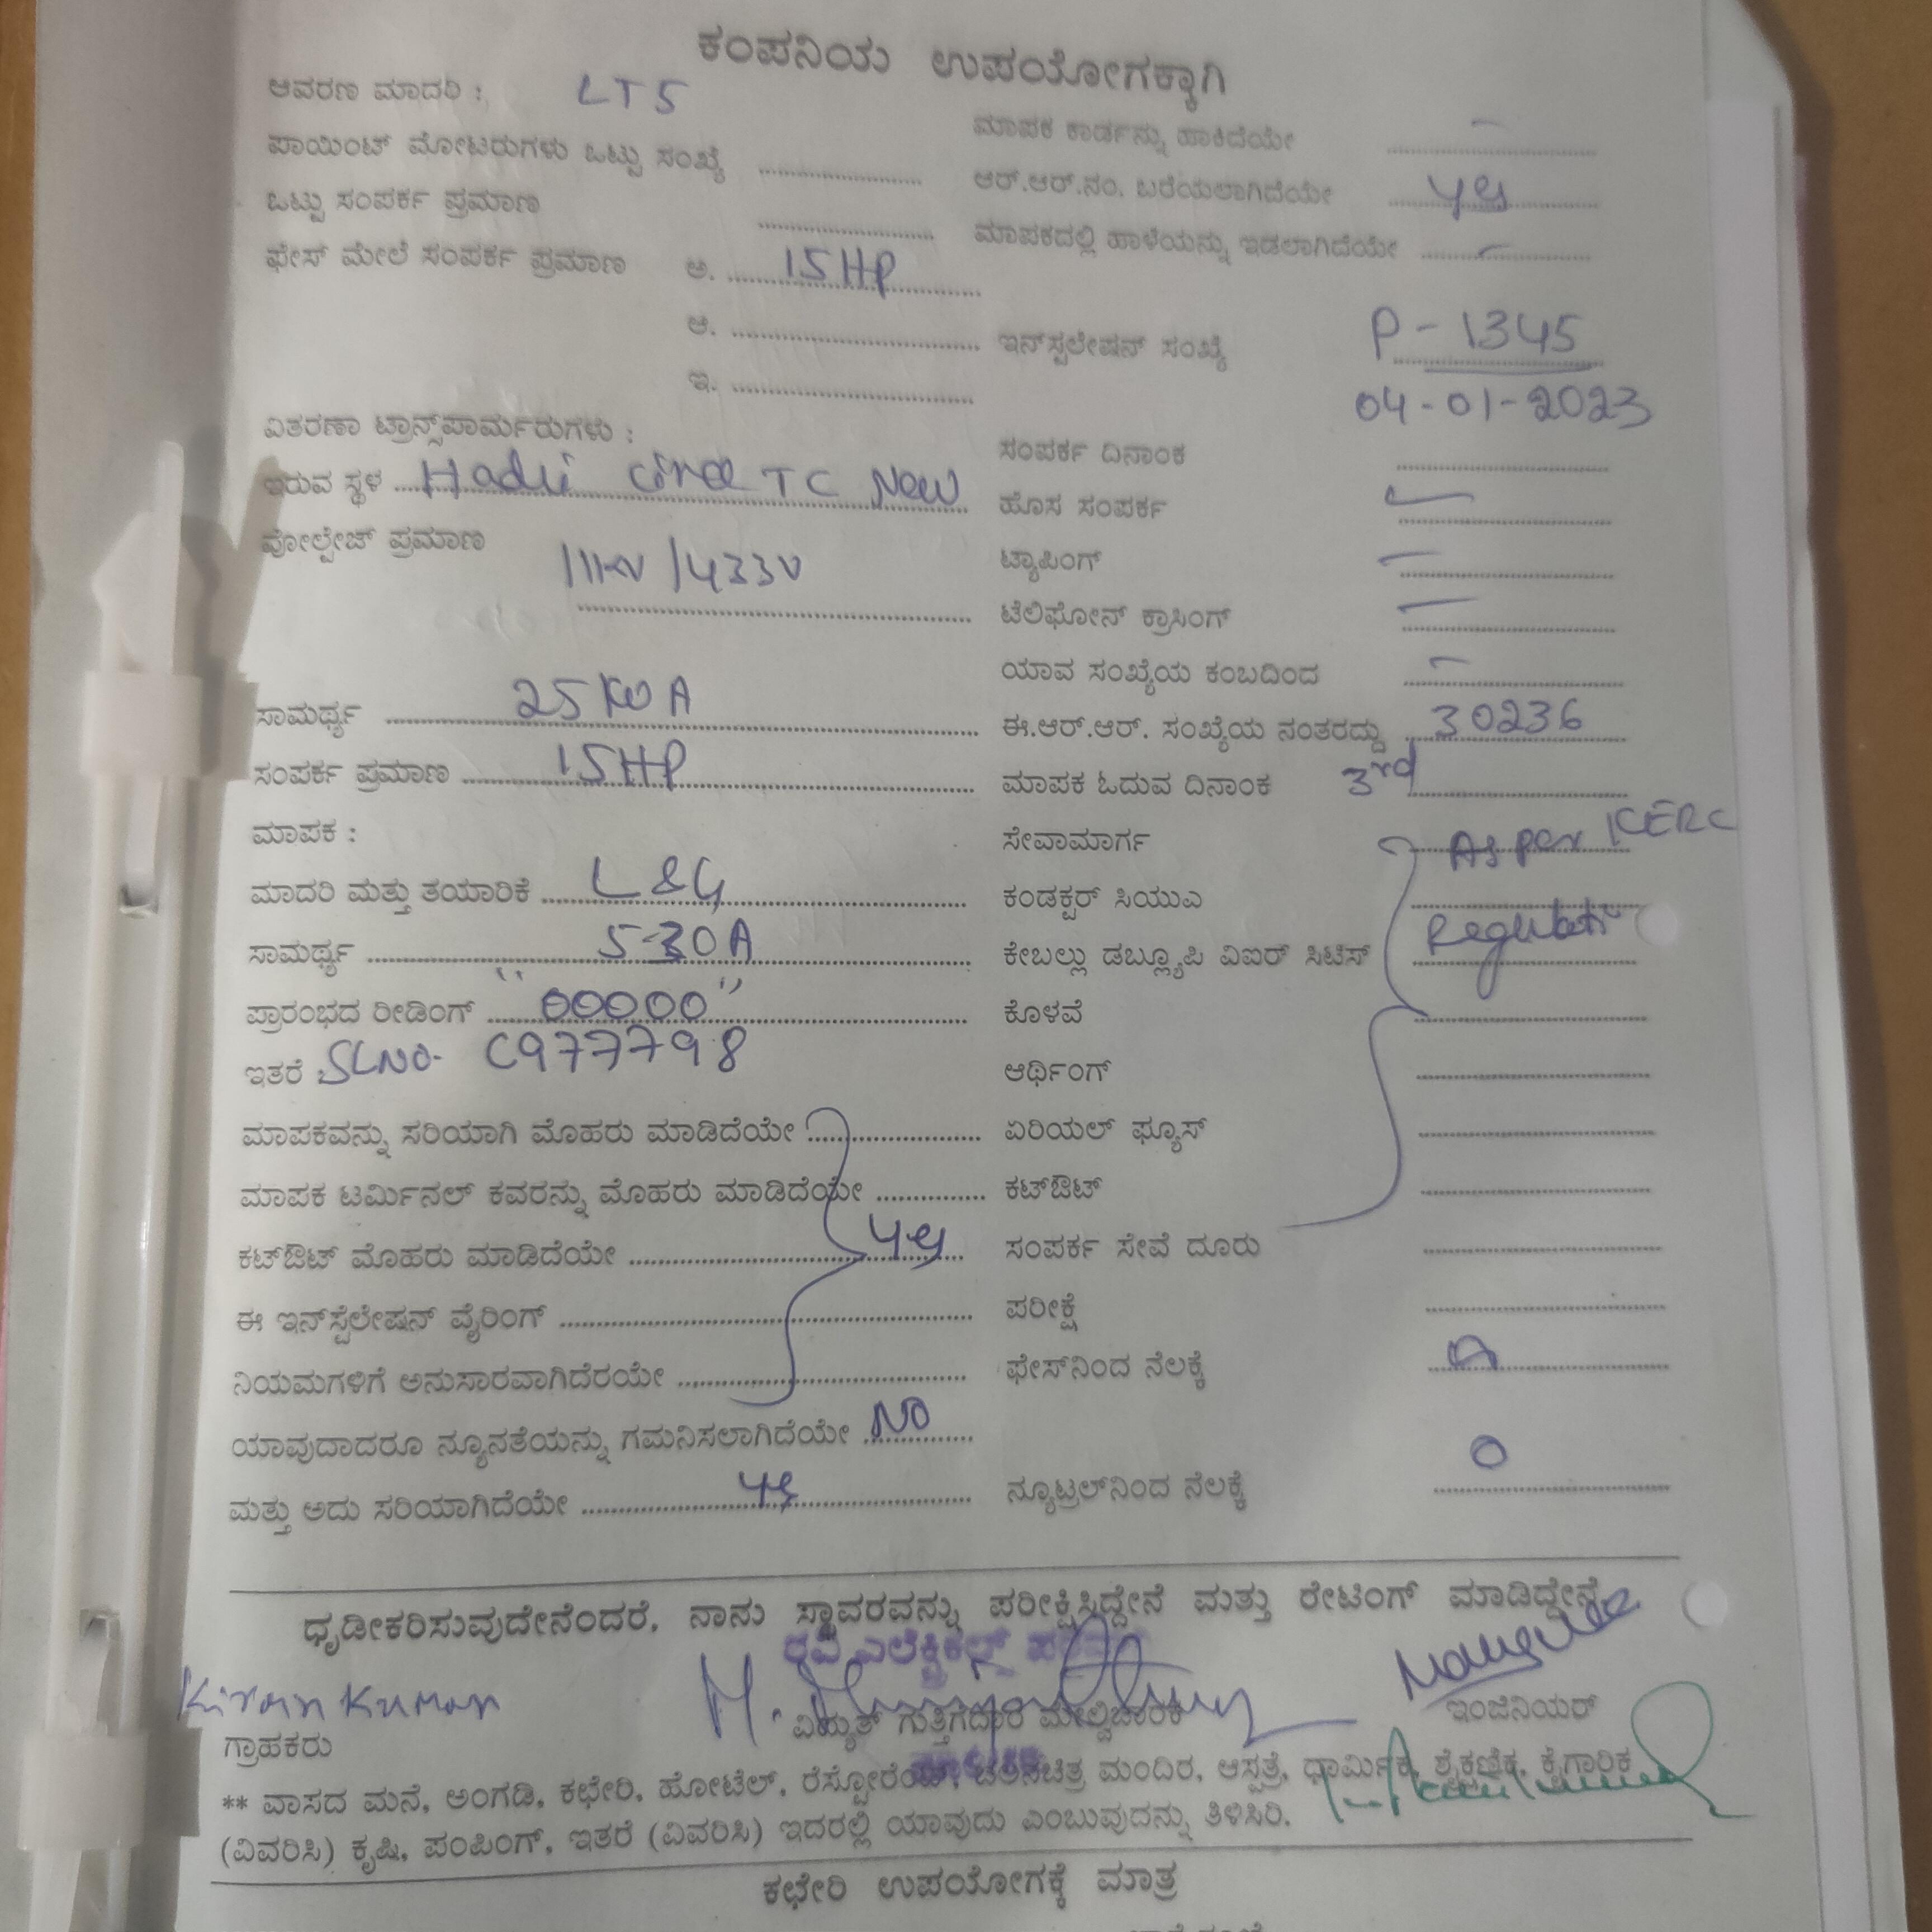 ಕಂಪನಿಯ ಉಪಯೋಗಕ್ಕಾಗಿ
ಆವರಣ ಮಾದರಿ : LT5
ಪಾಯಿಂಟ್ ಮೋಟರುಗಳು ಒಟ್ಟು ಸಂಖ್ಯೆ ..........
ಒಟ್ಟು ಸಂಪರ್ಕ ಪ್ರಮಾಣ ..........
ಫೇಸ್ ಮೇಲೆ ಸಂಪರ್ಕ ಪ್ರಮಾಣ ಅ. 15HP
ಆ. ..........
ಇ. ..........
ವಿತರಣಾ ಟ್ರಾನ್ಸ್‌ಪಾರ್ಮರುಗಳು :
ಇರುವ ಸ್ಥಳ Hadli circle TC New
ವೋಲ್ಟೇಜ್ ಪ್ರಮಾಣ 11KV/433V
ಸಾಮರ್ಥ್ಯ 25KVA
ಸಂಪರ್ಕ ಪ್ರಮಾಣ 15HP
ಮಾಪಕ :
ಮಾದರಿ ಮತ್ತು ತಯಾರಿಕೆ L&G
ಸಾಮರ್ಥ್ಯ 5-30A
ಪ್ರಾರಂಭದ ರೀಡಿಂಗ್ "00000"
ಇತರೆ : SLNO- C977798
ಮಾಪಕವನ್ನು ಸರಿಯಾಗಿ ಮೊಹರು ಮಾಡಿದೆಯೇ ..........
ಮಾಪಕ ಟರ್ಮಿನಲ್ ಕವರನ್ನು ಮೊಹರು ಮಾಡಿದೆಯೇ ..........
ಕಟ್‌ಔಟ್ ಮೊಹರು ಮಾಡಿದೆಯೇ .......... yes
ಈ ಇನ್‌ಸ್ಪೆಲೇಷನ್ ವೈರಿಂಗ್ ..........
ನಿಯಮಗಳಿಗೆ ಅನುಸಾರವಾಗಿದೆರಯೇ ..........
ಯಾವುದಾದರೂ ನ್ಯೂನತೆಯನ್ನು ಗಮನಿಸಲಾಗಿದೆಯೇ NO
ಮತ್ತು ಅದು ಸರಿಯಾಗಿದೆಯೇ yes
ಮಾಪಕ ಕಾರ್ಡನ್ನು ಹಾಕಿದೆಯೇ -
ಆರ್.ಆರ್.ನಂ. ಬರೆಯಲಾಗಿದೆಯೇ yes
ಮಾಪಕದಲ್ಲಿ ಹಾಳೆಯನ್ನು ಇಡಲಾಗಿದೆಯೇ -
ಇನ್‌ಸ್ಪಲೇಷನ್ ಸಂಖ್ಯೆ P-1345
04-01-2023
ಸಂಪರ್ಕ ದಿನಾಂಕ ..........
ಹೊಸ ಸಂಪರ್ಕ
ಟ್ಯಾಪಿಂಗ್ -
ಟೆಲಿಫೋನ್ ಕ್ರಾಸಿಂಗ್ -
ಯಾವ ಸಂಖ್ಯೆಯ ಕಂಬದಿಂದ -
ಈ.ಆರ್.ಆರ್. ಸಂಖ್ಯೆಯ ನಂತರದ್ದು 30236
ಮಾಪಕ ಓದುವ ದಿನಾಂಕ 3rd
ಸೇವಾಮಾರ್ಗ As per KERC
ಕಂಡಕ್ಟರ್ ಸಿಯುಎ ..........
ಕೇಬಲ್ಲು ಡಬ್ಲ್ಯೂಪಿ ವಿಐರ್ ಸಿಟಿಸ್ Regulation
ಕೊಳವೆ ..........
ಆರ್ಥಿಂಗ್ ..........
ಏರಿಯಲ್ ಫ್ಯೂಸ್ ..........
ಕಟ್‌ಔಟ್ ..........
ಸಂಪರ್ಕ ಸೇವೆ ದೂರು ..........
ಪರೀಕ್ಷೆ ..........
ಫೇಸ್‌ನಿಂದ ನೆಲಕ್ಕೆ
ನ್ಯೂಟ್ರಲ್‌ನಿಂದ ನೆಲಕ್ಕೆ 0
ಧೃಡೀಕರಿಸುವುದೇನೆಂದರೆ, ನಾನು ಸ್ಥಾವರವನ್ನು ಪರೀಕ್ಷಿಸಿದ್ದೇನೆ ಮತ್ತು ರೇಟಿಂಗ್ ಮಾಡಿದ್ದೇನೆ.
ರವಿ ಎಲೆಕ್ಟ್ರಿಕಲ್ಸ್
Kiran Kumar
ಗ್ರಾಹಕರು
ವಿದ್ಯುತ್ ಗುತ್ತಿಗೆದಾರ ಮೇಲ್ವಿಚಾರಕ
ಇಂಜಿನಿಯರ್
** ವಾಸದ ಮನೆ, ಅಂಗಡಿ, ಕಛೇರಿ, ಹೋಟೆಲ್, ರೆಸ್ಟೋರೆಂಟ್, ಚಲನಚಿತ್ರ ಮಂದಿರ, ಆಸ್ಪತ್ರೆ, ಧಾರ್ಮಿಕ, ಶೈಕ್ಷಣಿಕ, ಕೈಗಾರಿಕ
(ವಿವರಿಸಿ) ಕೃಷಿ, ಪಂಪಿಂಗ್, ಇತರೆ (ವಿವರಿಸಿ) ಇದರಲ್ಲಿ ಯಾವುದು ಎಂಬುವುದನ್ನು ತಿಳಿಸಿರಿ.
ಕಛೇರಿ ಉಪಯೋಗಕ್ಕೆ ಮಾತ್ರ